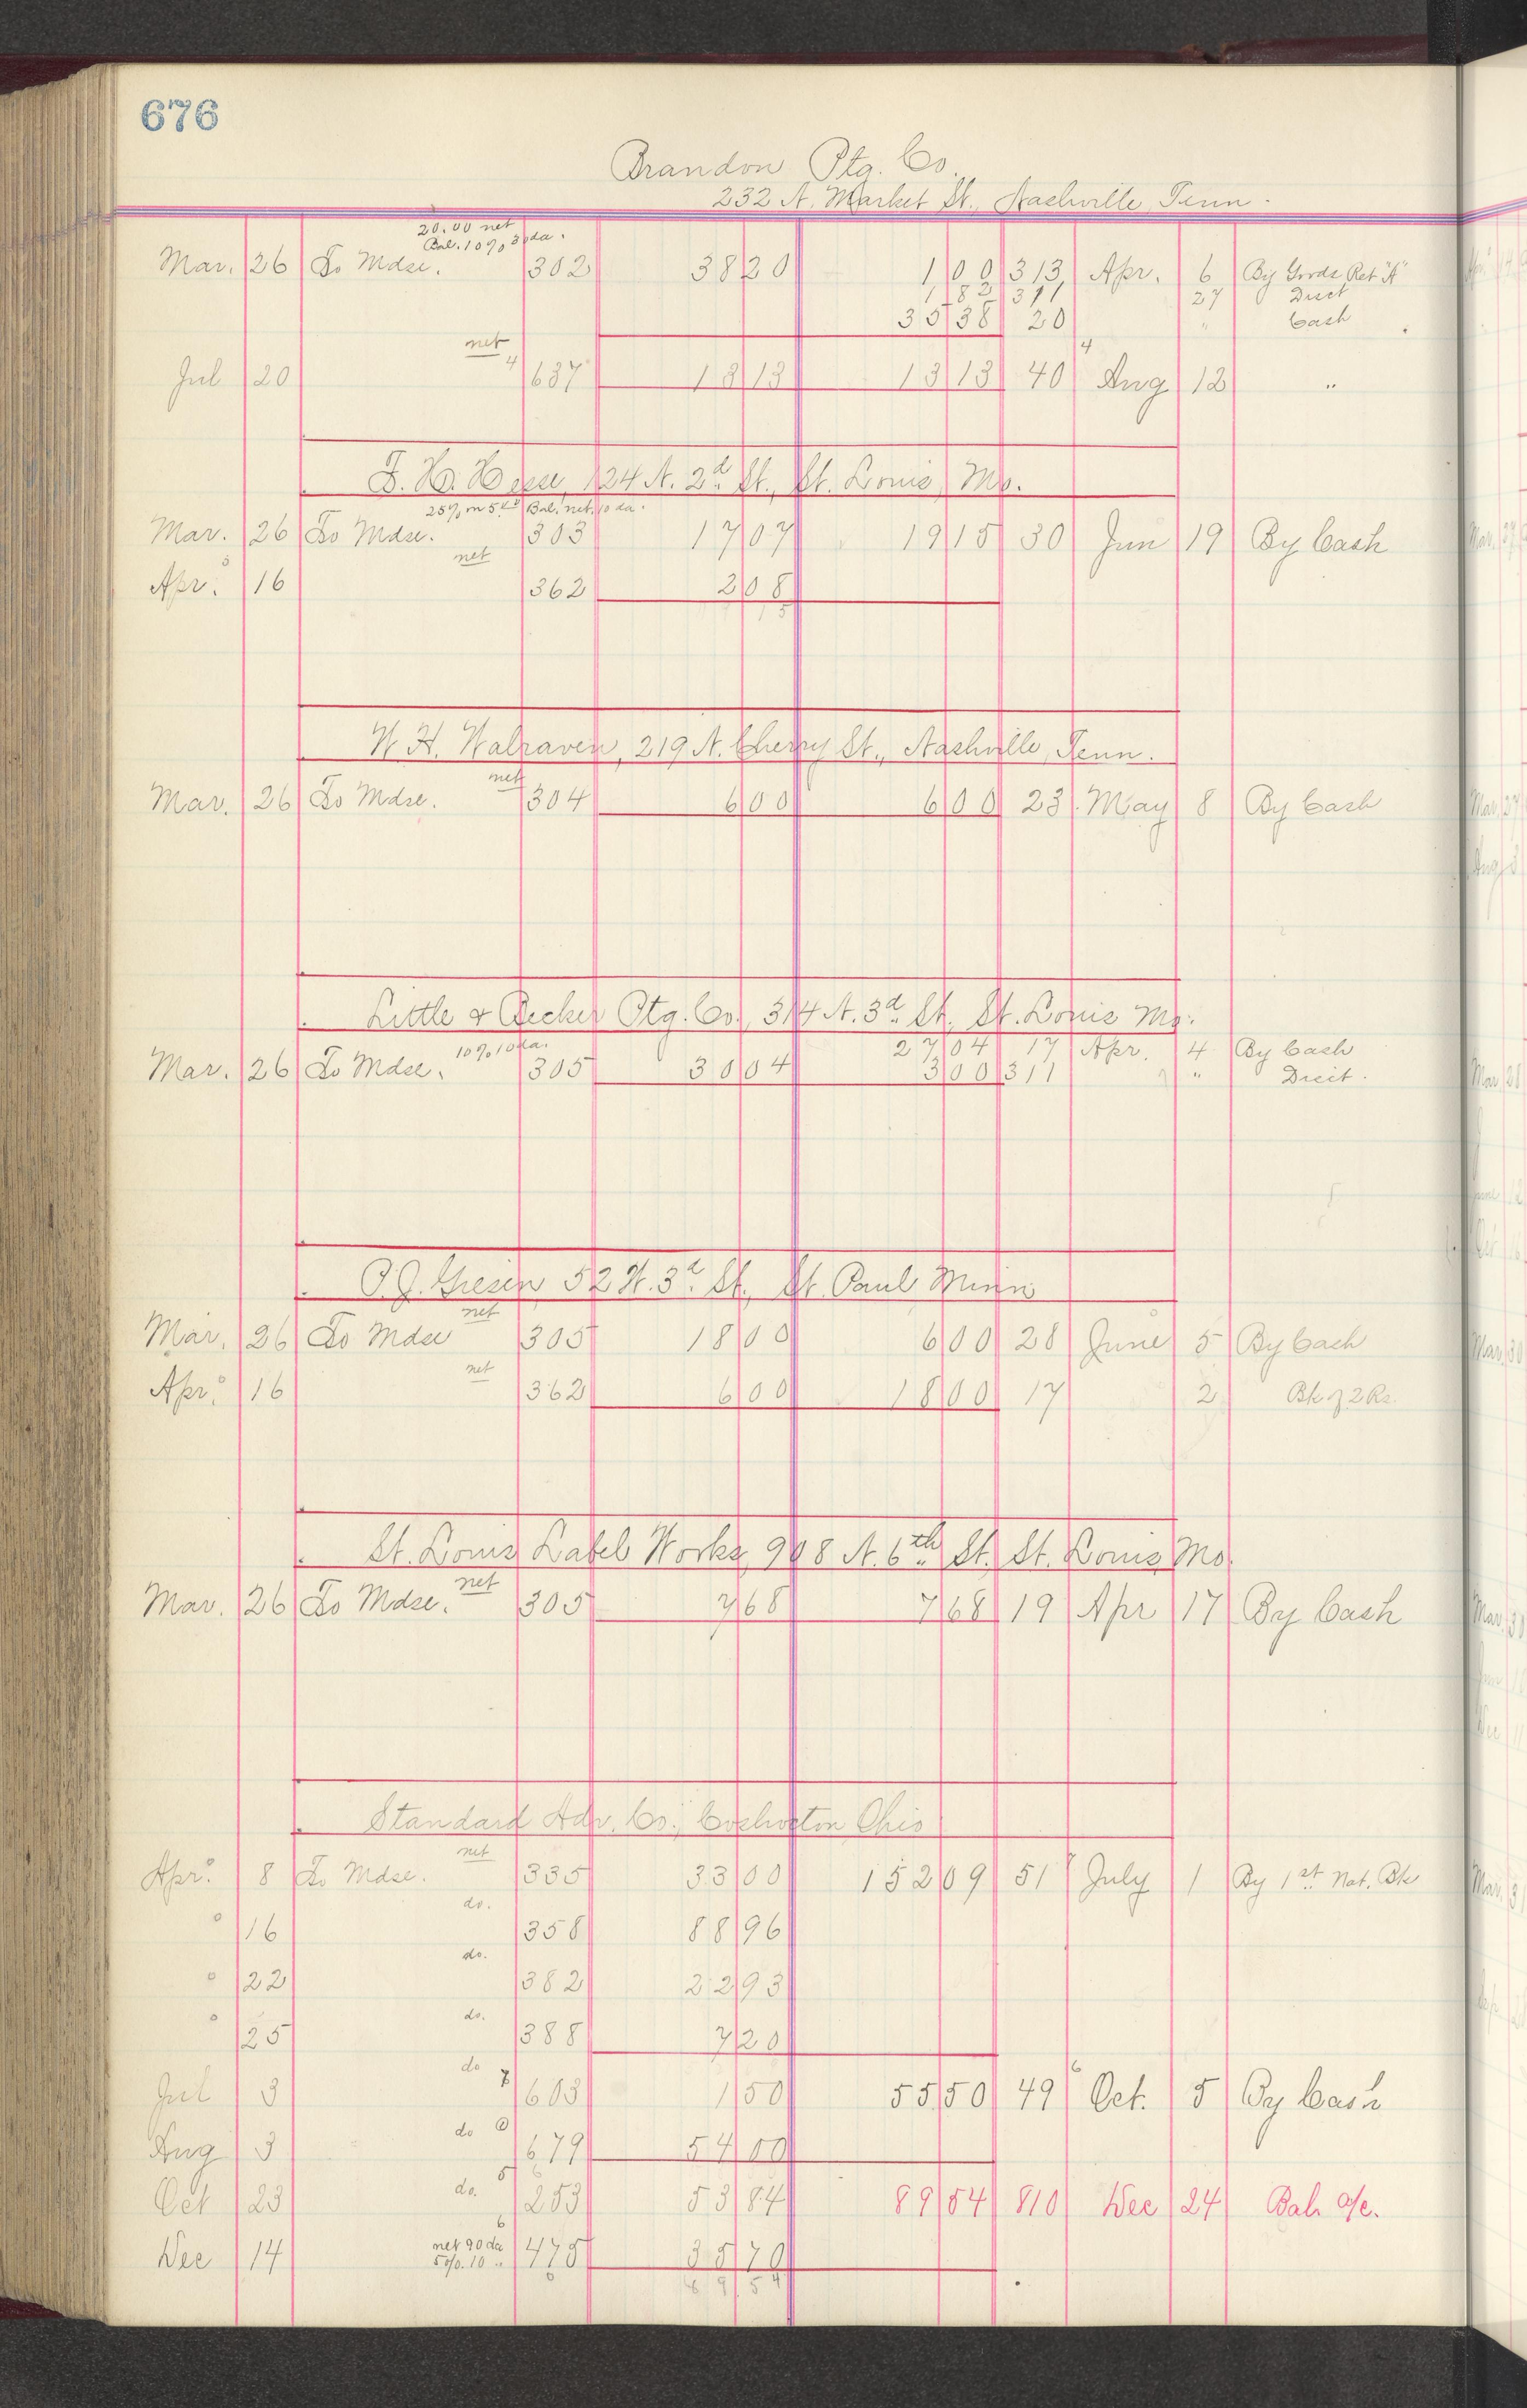 676
Brandon Ptg. Co.
232 N. Market St., Nashville, Tenn.
20.00 net
Bal. 10% 30 da.
Mar. 26 To Mdse. 302 38 20 1 00 313 Apr. 6 By Goods Ret "A"
1 82 311 27 Disct
35 38 20 " Cash
net
Jul 20 4 637 13 13 13 13 40 4 Aug 12 "
124 N. 2d St., St. Louis, Mo.
25% on 5.00 Bal. net. 10 da.
Mar. 26 To Mdse. 303 17 07 19 15 30 Jun 19 By Cash
net
Apr. 16 362 2 08
W. H. Walraven, 219 N. Cherry St., Nashville, Tenn.
net
Mar. 26 To Mdse. 304 6 00 6 00 23 May 8 By Cash
Little & Becker Ptg. Co., 314 N. 3d St., St. Louis Mo.
10% 10 da. 27 04 17 Apr. 4 By Cash
Mar. 26 To Mdse. 305 30 04 3 00 311 " Disct.
P. J. Giesen 52 W. 3d St., St. Paul Minn
net
Mar. 26 To Mdse 305 18 00 6 00 28 June 5 By Cash
net
Apr. 16 362 6 00 18 00 17 2 Bk of 2 Rs.
St. Louis Label Works, 908 N. 6th St., St. Louis, Mo.
net
Mar. 26 To Mdse. 305 7 68 7 68 19 Apr 17 By Cash
Standard Adv. Co., Coshocton, Ohio
net
Apr. 8 To Mdse. 335 33 00 152 09 51 July 1 By 1st Nat. Bk
do.
" 16 358 88 96
do.
" 22 382 22 93
do.
" 25 388 7 20
do
Jul 3 7 603 1 50 55 50 49 6 Oct. 5 By Cash
do
Aug 3 679 54 00
do. 5
Oct 23 253 53 84 89 54 810 Dec 24 Bal. a/c.
6
net 90 da
Dec 14 5% 10 " 475 35 70
89 54